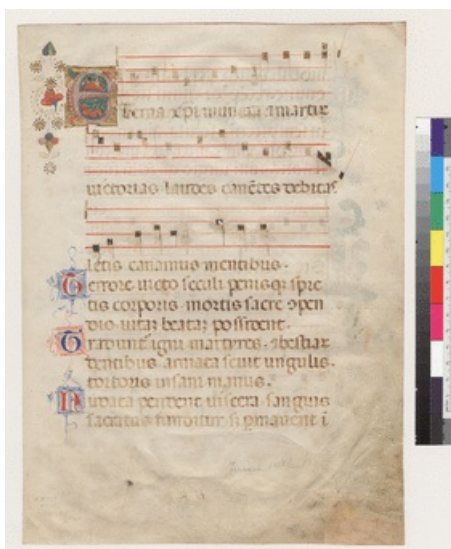 Eterna xpi munera & martir
uictorias laudes canētes debitas
letis canamus mentibus.
Terrore uicto seculi penisq; spre
tis corporis mortis sacre ɔpen
dio uitaʒ beataʒ possident.
Tradunt igni martyres & bestiaʒ
dentibus armata seuit ungulis.
tortoris insani manus.
Nudata pendent uiscera sanguis
sacratus funditur ſʒ pmanent ī